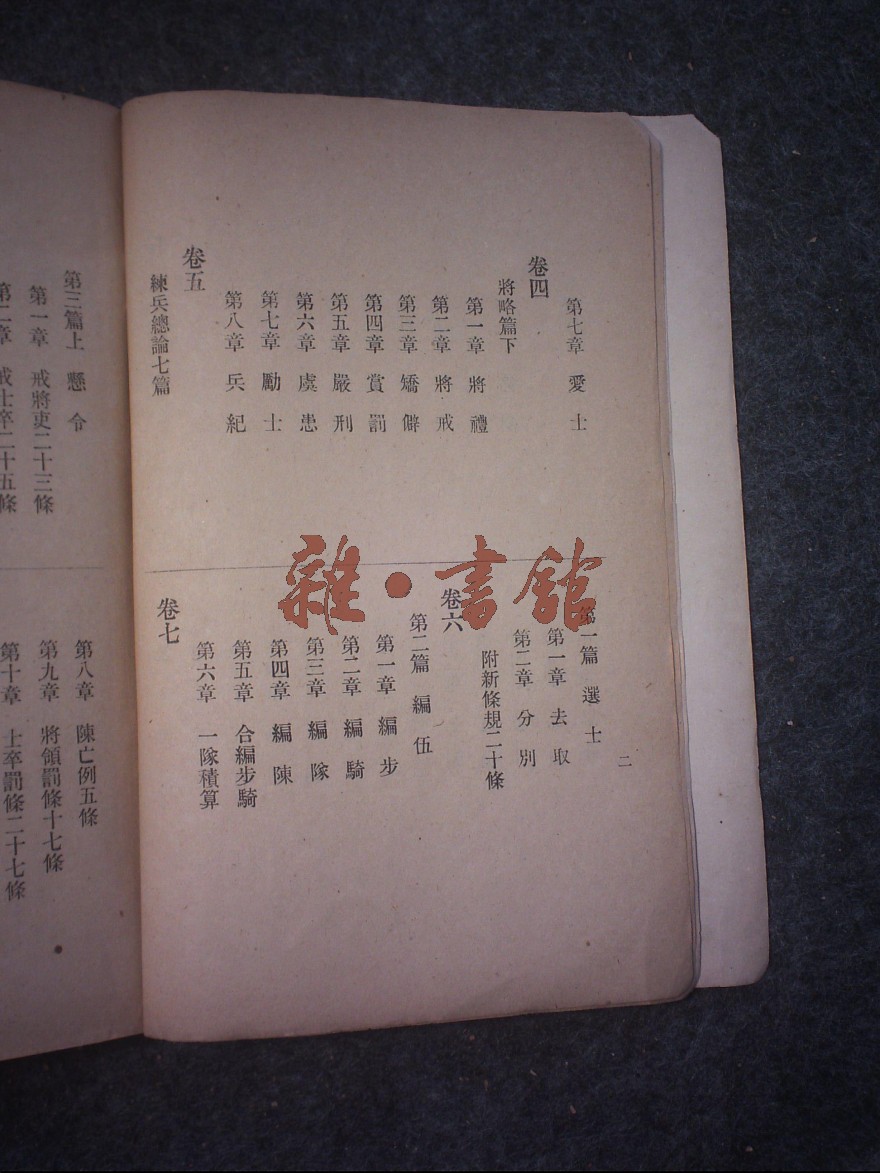 第七章 愛 士
卷四
將略篇下
第一章 將 禮
第二章 將 戒
第三章 矯 僻
第四章 賞 罰
第五章 嚴 刑
第六章 虞 患
第七章 勵 士
第八章 兵 紀
卷五
練兵總論七篇
二
第一篇 選 士
第一章 去 取
第二章 分 別
附新條規二十條
卷六
第二篇 編 伍
第一章 編 步
第二章 編 騎
第三章 編 隊
第四章 編 陳
第五章 合編步騎
第六章 一隊積算
卷七
雜·書館
第三篇上 懸 令
第一章 戒將吏二十三條
第二章 戒士卒二十五條
第八章 陳亡例五條
第九章 將領罰條十七條
第十章 士卒罰條二十七條